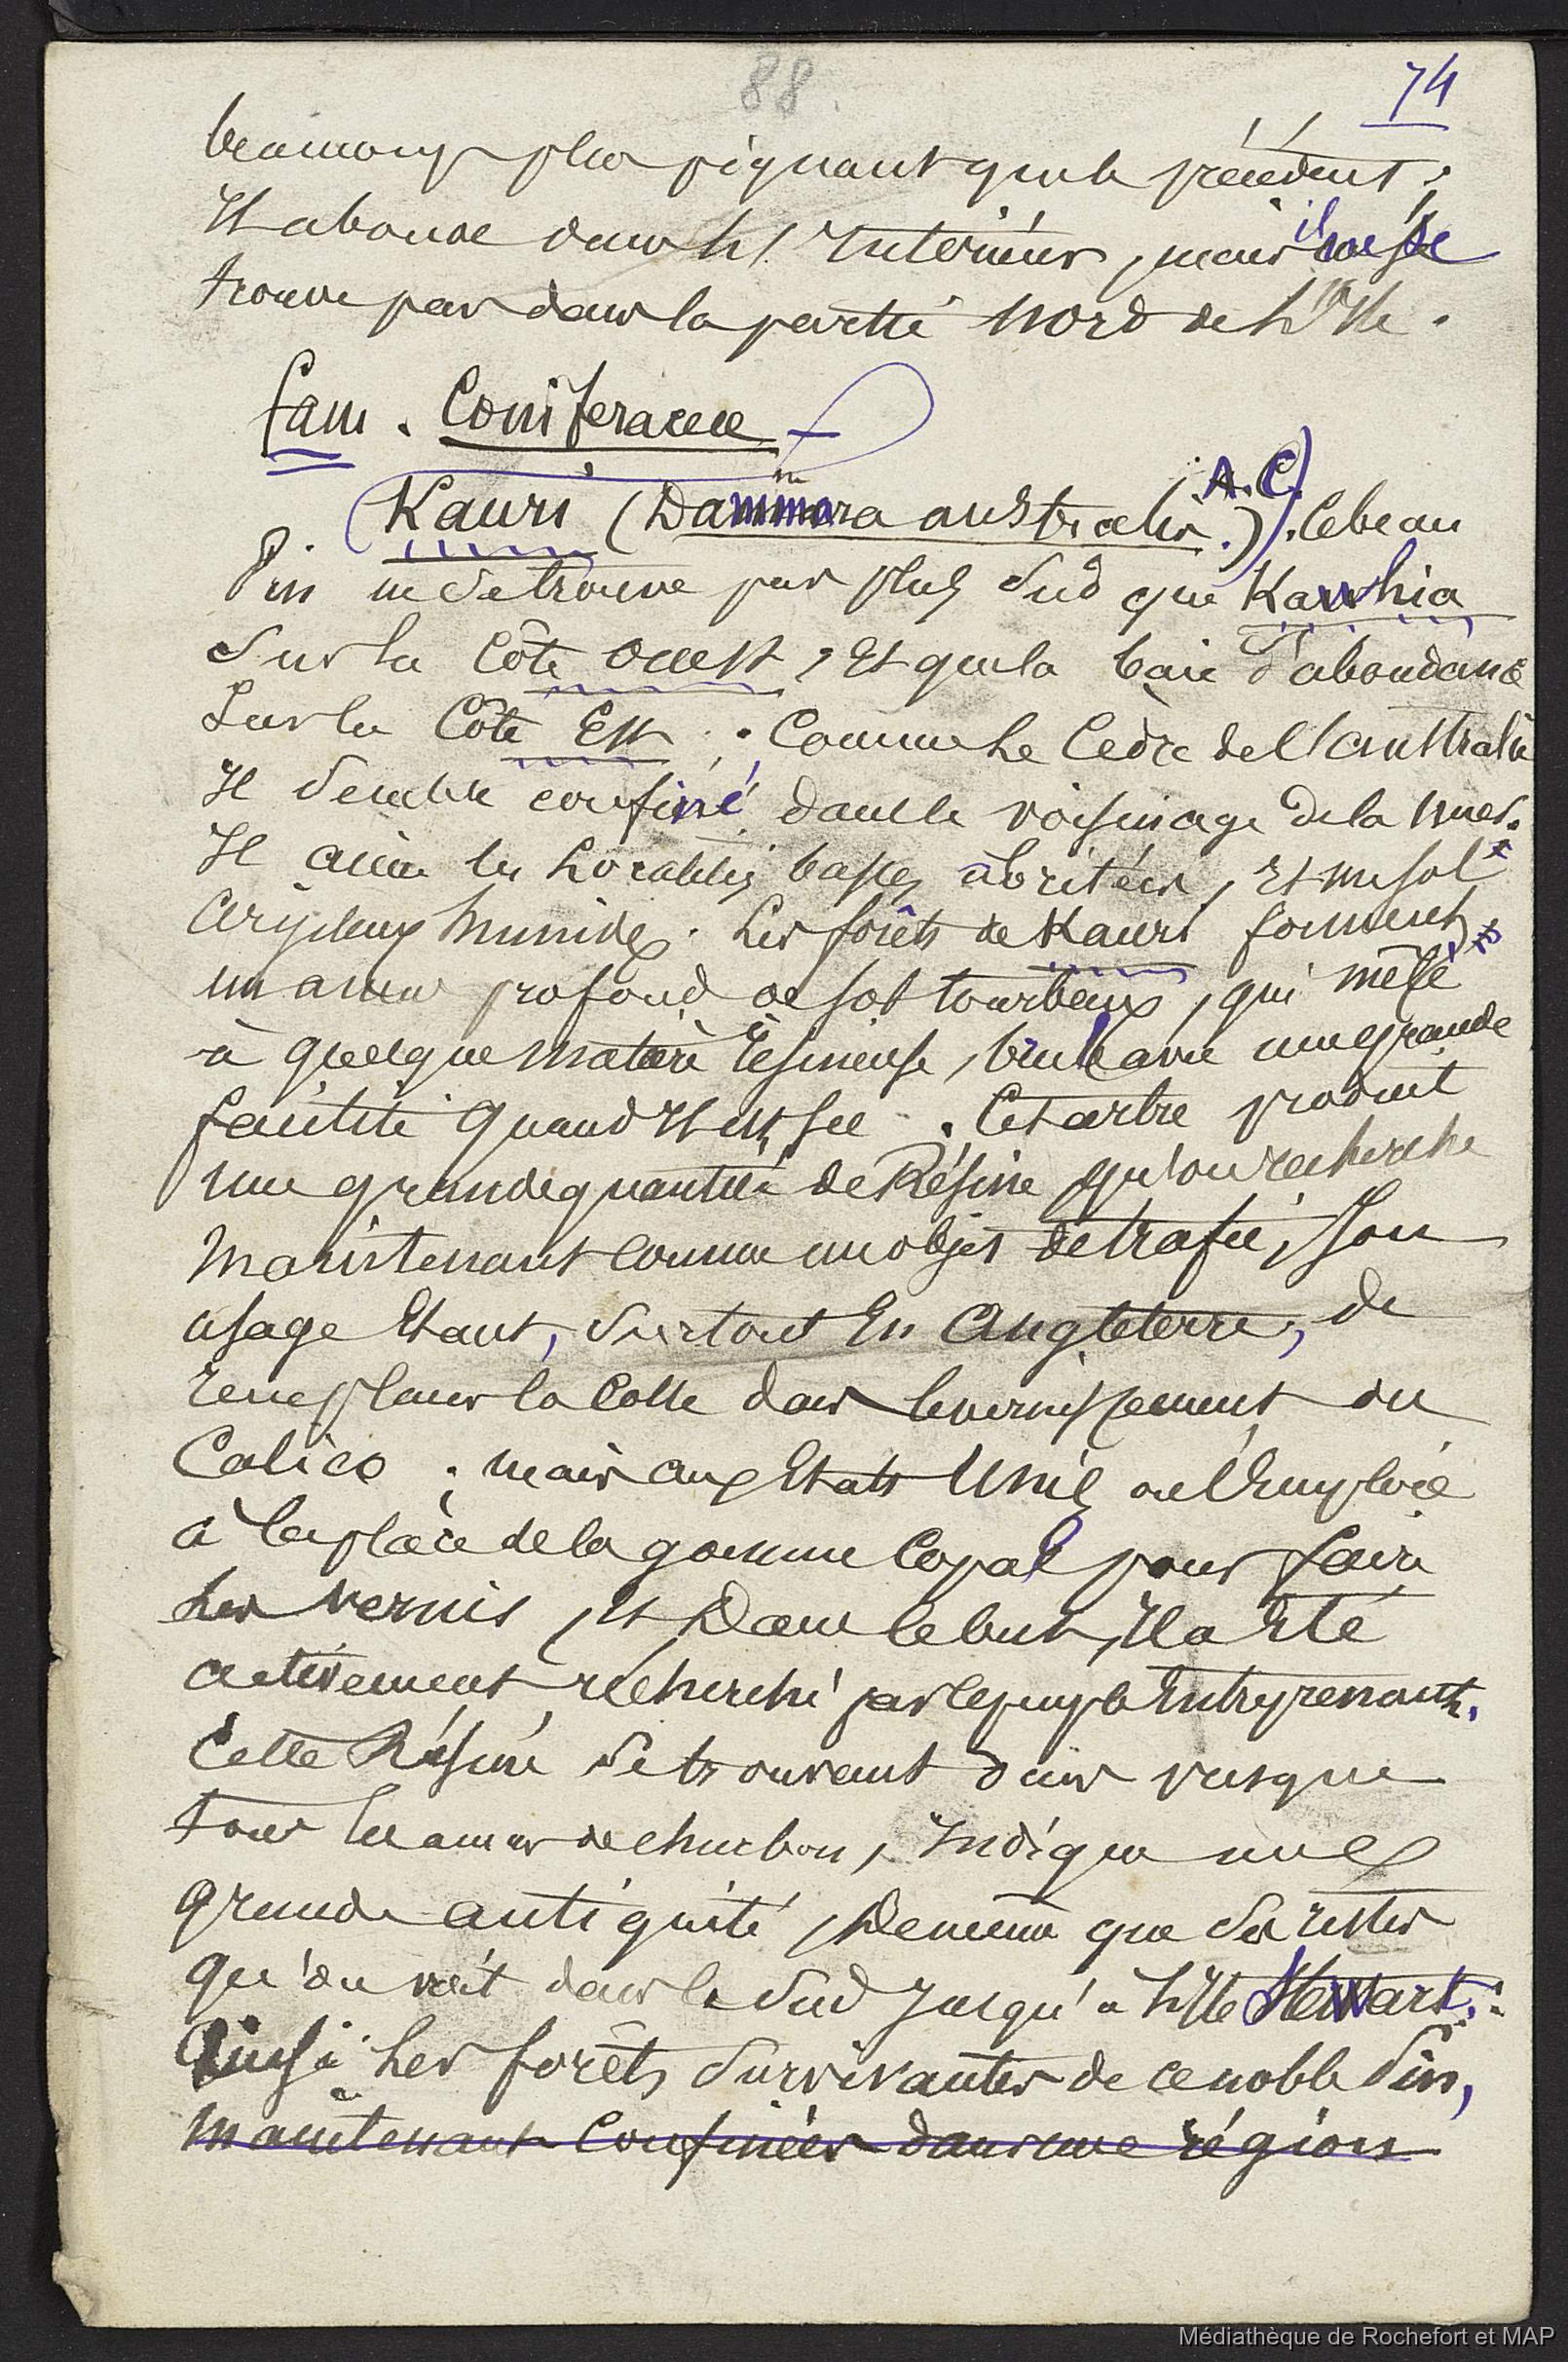 88.
74
beaucoup plus piquant que le précédent ;
Il abonde dans l'Intérieur, mais il ne se
trouve pas dans la partie Nord de l'Ile.
fam. Coniferaceae
Kauri (Dammara australis. A.C.) . Ce beau
Pin ne se trouve pas plus Sud que Kawhia
Sur la Côte Ouest, Et que la baie d'abondance
Sur la Côte Est ; Comme le Cèdre de l'australie
Il Semble confiné dans le voisinage de la mer.
Il aime les Localités basses abritées, et un sol
Argileux humide. Les forêts de Kauri forment
un amas profond de sol tourbeux, qui mêlé
à quelque matière résineuse, brule avec une grande
facilité quand Il est sec. Cet arbre produit
une grande quantité de Résine qu'on recherche
Maintenant comme un objet de trafic, Son
usage Etant, Surtout En Angleterre, de
remplacer la Colle dans le vernissement du
Calico ; mais aux Etats Unis on l'Emploie
à la place de la gomme Copal pour faire
Les vernis, et Dans ce but, Il a Eté
activement recherché par ce peuple Entreprenant.
Cette Résine Se trouvant dans presque
tous les amas de charbon, Indique une
grande antiquité, De même que Ses restes
qu'on voit dans le Sud jusqu'à l'Ile Stewart :
Ainsi Les forêts Survivantes de ce noble Pin,
Maintenant Confinées dans une région
Médiathèque de Rochefort et MAP